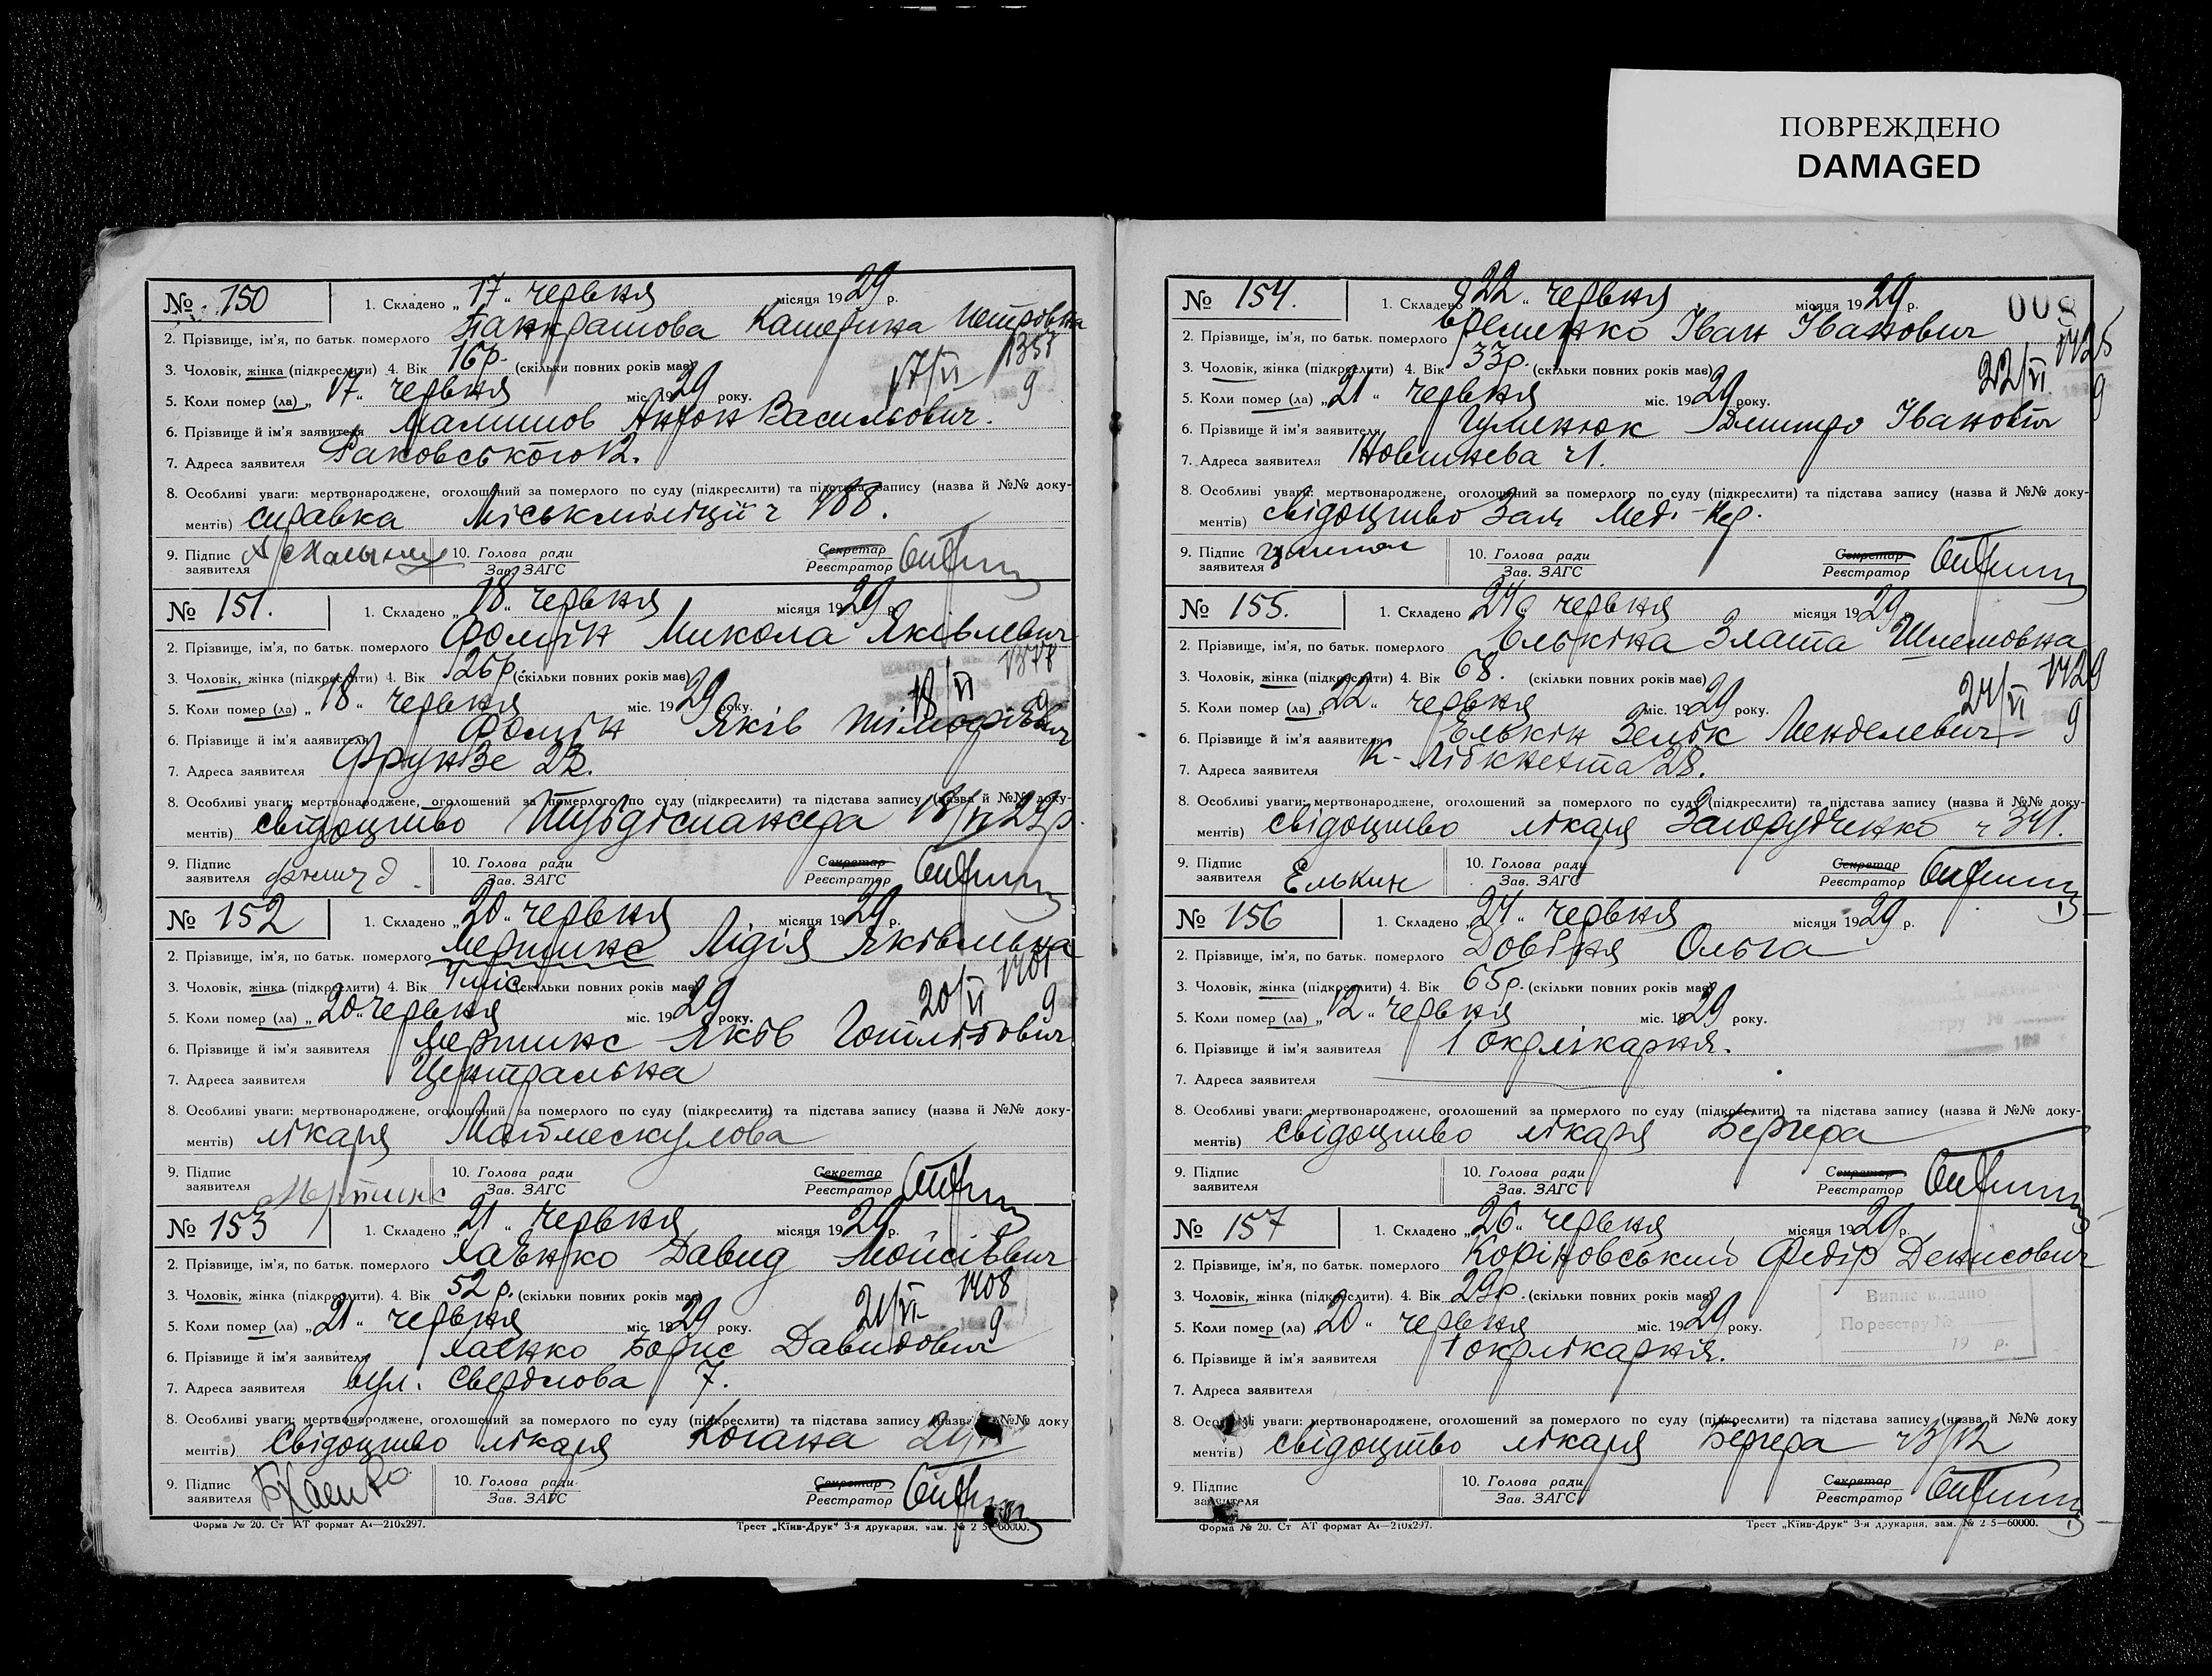 ПОВРЕЖДЕНО
DAMAGED
№ 150
1. Складено „17“ червня місяця 1929 р.
2. Прізвище, ім'я, по батьк. померлого Панкратова Катерина Петровна
3. Чоловік, жінка (підкреслити) 4. Вік 16р. (скільки повних років має)
17/VI
5. Коли помер (ла) „17“ червня міс. 1929 року.
9
6. Прізвище й ім'я заявителя Антон Васильович.
7. Адреса заявителя Раковського 12.
8. Особливі уваги: мертвонароджене, оголошений за померлого по суду (підкреслити) та підстава запису (назва й №№ доку-
ментів) справка Міськміліції ч 488.
9. Підпис заявителя
10. Голова ради
Зав. ЗАГС
Секретар
Реєстратор
№ 151.
1. Складено „18“ червня місяця 1929 р.
2. Прізвище, ім'я, по батьк. померлого Фомін Микола Яківлевич
3. Чоловік, жінка (підкреслити) 4. Вік 26р. (скільки повних років має)
1378
18/VI
5. Коли помер (ла) „18“ червня міс. 1929 року.
9
6. Прізвище й ім'я заявителя Фомін Яків Тімофієвич
7. Адреса заявителя Фрунзе 23.
8. Особливі уваги: мертвонароджене, оголошений за померлого по суду (підкреслити) та підстава запису (назва й №№ доку-
ментів) свідоцтво Тубдіспансера 18/VI 29р.
9. Підпис заявителя
10. Голова ради
Зав. ЗАГС
Секретар
Реєстратор
№ 152
1. Складено „20“ червня місяця 1929 р.
2. Прізвище, ім'я, по батьк. померлого Мертинс Лідія Яківлевна
3. Чоловік, жінка (підкреслити) 4. Вік 4 міс (скільки повних років має)
1401
20/VI
5. Коли помер (ла) „20“ червня міс. 1929 року.
9
6. Прізвище й ім'я заявителя Мертинс Яков Готлібович
7. Адреса заявителя Центральна
8. Особливі уваги: мертвонароджене, оголошений за померлого по суду (підкреслити) та підстава запису (назва й №№ доку-
ментів) лікаря Маймескулова
9. Підпис заявителя Мертинс
10. Голова ради
Зав. ЗАГС
Секретар
Реєстратор
№ 153
1. Складено „21“ червня місяця 1929 р.
2. Прізвище, ім'я, по батьк. померлого Хаєнко Давид Мойсієвич
3. Чоловік, жінка (підкреслити). 4. Вік 52 р. (скільки повних років має)
1408
21/VI
5. Коли помер (ла) „21“ червня міс. 1929 року.
9
6. Прізвище й ім'я заявителя Хаєнко Борис Давидович
7. Адреса заявителя вул. Свердлова 7.
8. Особливі уваги: мертвонароджене, оголошений за померлого по суду (підкреслити) та підстава запису (назва й №№ доку
ментів) Свідоцтво лікаря Когана
9. Підпис заявителя БХаенко
10. Голова ради
Зав. ЗАГС
Секретар
Реєстратор
Форма № 20. Ст АТ формат А4—210x297.
Трест „Київ-Друк“ 3-я друкарня, зам. № 2 5—60000.
№ 154.
1. Складено „22“ червня місяця 1929 р.
008
2. Прізвище, ім'я, по батьк. померлого Єременко Іван Іванович
3. Чоловік, жінка (підкреслити) 4. Вік 33р. (скільки повних років має)
1425
22/VI
5. Коли помер (ла) „21“ червня міс. 1929 року.
9
6. Прізвище й ім'я заявителя Гуменюк Дмитро Іванович
7. Адреса заявителя
8. Особливі уваги: мертвонароджене, оголошений за померлого по суду (підкреслити) та підстава запису (назва й №№ доку-
ментів) свідоцтво Мед.
9. Підпис заявителя
10. Голова ради
Зав. ЗАГС
Секретар
Реєстратор
№ 155.
1. Складено „24“ червня місяця 1929 р.
2. Прізвище, ім'я, по батьк. померлого Елькіна Злата Шлемовна
3. Чоловік, жінка (підкреслити) 4. Вік 68. (скільки повних років має)
1429
24/VI
5. Коли помер (ла) „22“ червня міс. 1929 року.
9
6. Прізвище й ім'я заявителя Елькін Зелік Менделевич
7. Адреса заявителя К-Лібкнехта 28.
8. Особливі уваги: мертвонароджене, оголошений за померлого по суду (підкреслити) та підстава запису (назва й №№ доку-
ментів) свідоцтво лікаря Загорудченко ч 341.
9. Підпис заявителя Елькин
10. Голова ради
Зав. ЗАГС
Секретар
Реєстратор
№ 156
1. Складено „24“ червня місяця 1929 р.
2. Прізвище, ім'я, по батьк. померлого Довбня Ольга
3. Чоловік, жінка (підкреслити) 4. Вік 65р. (скільки повних років має)
5. Коли помер (ла) „12“ червня міс. 1929 року.
6. Прізвище й ім'я заявителя 1 окрлікарня.
7. Адреса заявителя
8. Особливі уваги: мертвонароджене, оголошений за померлого по суду (підкреслити) та підстава запису (назва й №№ доку-
ментів) свідоцтво лікаря Бергера
9. Підпис заявителя
10. Голова ради
Зав. ЗАГС
Секретар
Реєстратор
№ 157
1. Складено „26“ червня місяця 1929 р.
2. Прізвище, ім'я, по батьк. померлого Коріновський Федір Денисович
3. Чоловік, жінка (підкреслити). 4. Вік 29р. (скільки повних років має)
Випис видано
По реєстру №
19 р.
5. Коли помер (ла) „20“ червня міс. 1929 року.
6. Прізвище й ім'я заявителя 1 окрлікарня.
7. Адреса заявителя
8. Особливі уваги: мертвонароджене, оголошений за померлого по суду (підкреслити) та підстава запису (назва й №№ доку
ментів) свідоцтво лікаря Бергера
9. Підпис заявителя
10. Голова ради
Зав. ЗАГС
Секретар
Реєстратор
Форма № 20. Ст АТ формат А4—210x297.
Трест „Київ-Друк“ 3-я друкарня, зам. № 2 5—60000.